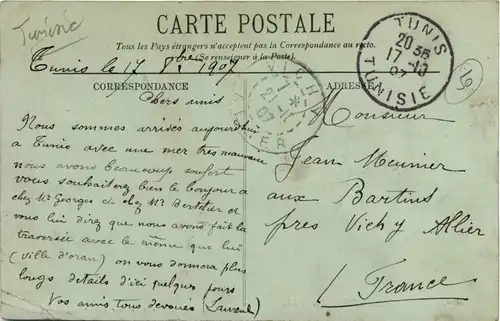 Tunisie
CARTE POSTALE
Tous les Pays étrangers n'acceptent pas la Correspondance au recto.
(Se renseigner à la Poste).
Tunis le 17 8bre 1907
TUNIS
20 35
17-10
07
TUNISIE
19
CORRESPONDANCE
ADRESSE
VICHY
ALLIER
Chers amis
Nous sommes arrivés aujourd'hui
a Tunis avec une mer tres mauvaise
nous avons beaucoup souffert
vous souhaiterez bien le bonjour a
chez Mr Georges et chez Mr Bertelier et
vous lui direz que nous avons fait la
traversée avec le même que lui
(ville d'oran) on vous donnera plus
longs details d'ici quelques jours
Vos amis tous devoués (Laurent)
Monsieur
Jean Meunier
aux Bartins
près Vichy Allier
France